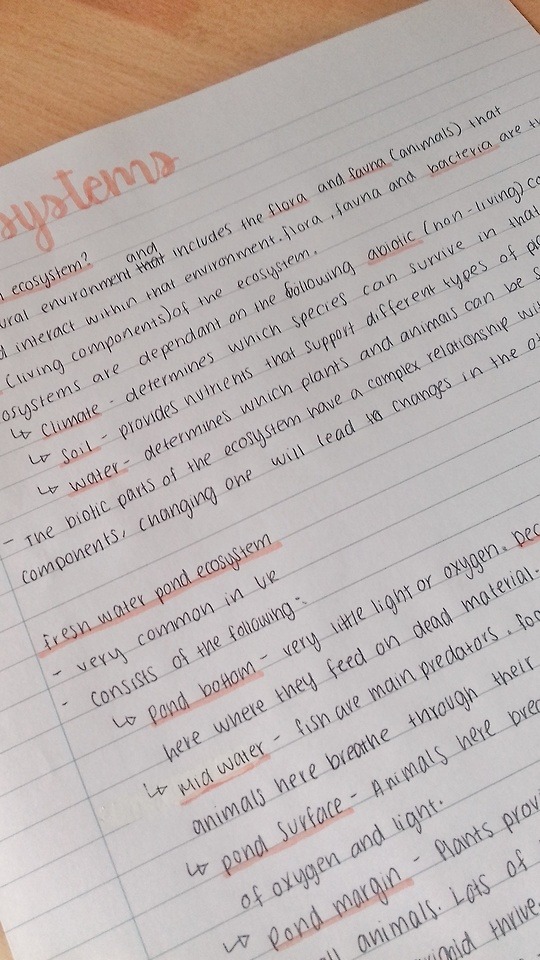 systems
ecosystem?
and
environment that includes the flora and fauna (animals) that
interact within that environment. flora, fauna and bacteria are
(living components) of the ecosystem.
osystems are dependant on the following abiotic (non-living)
↳ Climate - determines which species can survive in that
↳ Soil - provides nutrients that support different types of
↳ Water - determines which plants and animals can be
- The biotic parts of the ecosystem have a complex relationship
components, changing one will lead to changes in the
fresh water pond ecosystem
- very common in UK
- consists of the following:
↳ Pond bottom - very little light or oxygen.
here where they feed on dead material.
↳ Mid water - fish are main predators.
animals here breathe through their
↳ pond surface - Animals here
of oxygen and light.
↳ Pond margin - Plants
animals. Lots of
thrive.